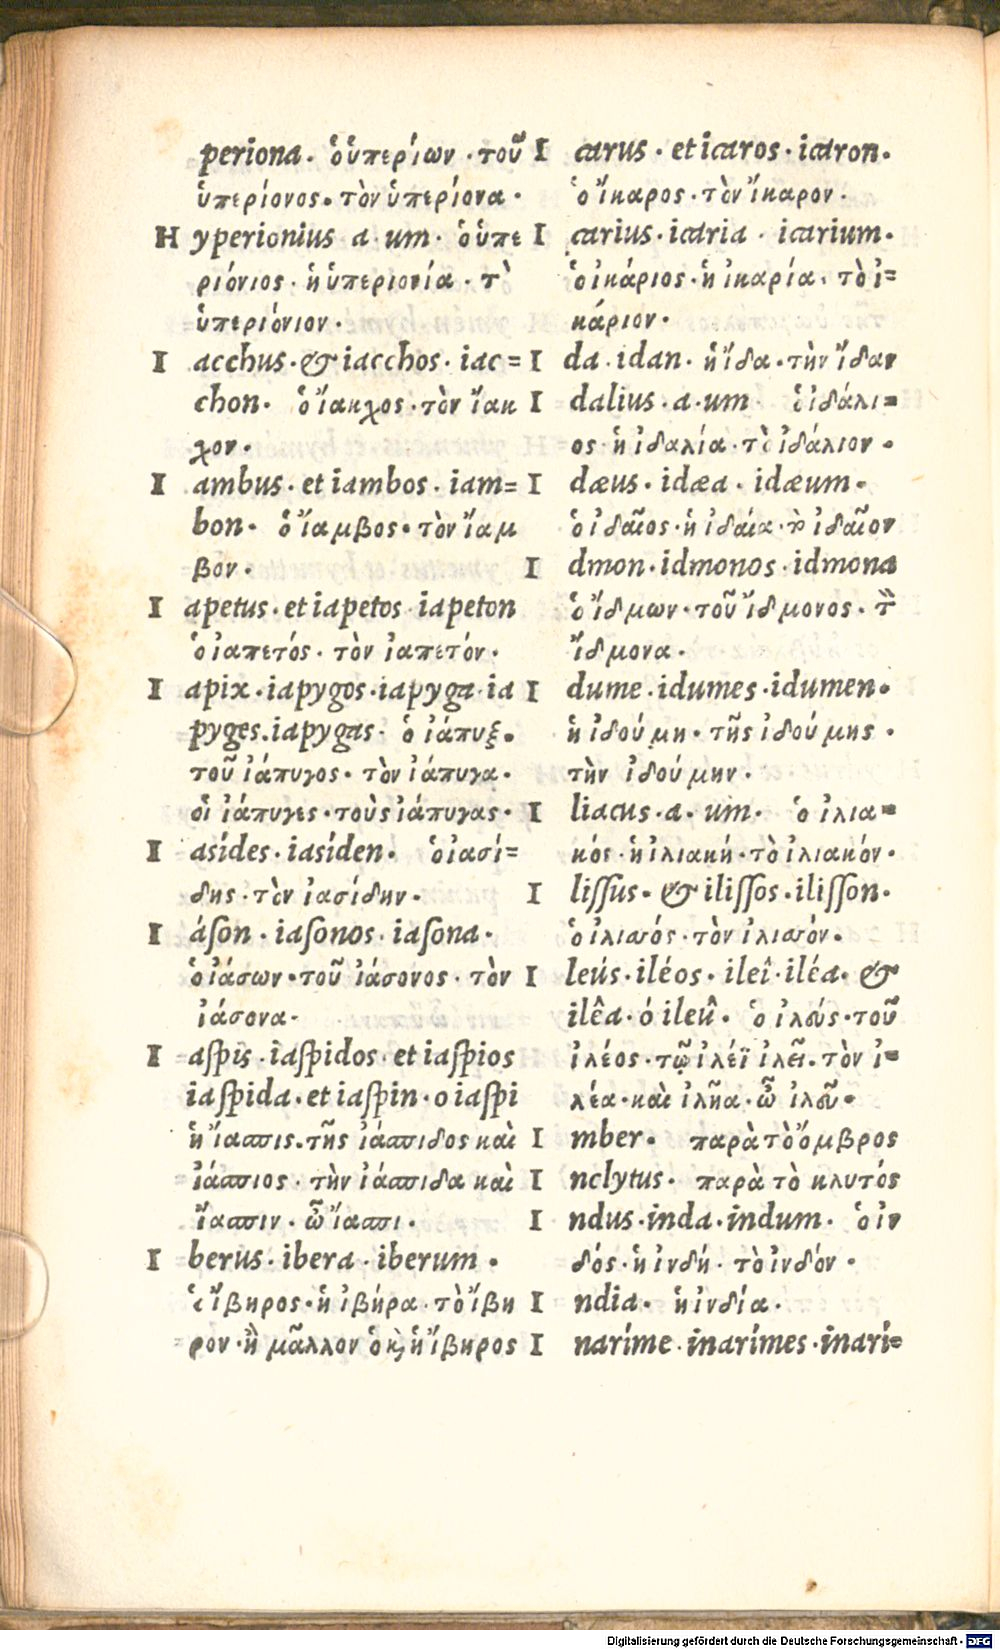 periona. ὁ ὑπερίων. τοῦ
ὑπερίονος. τὸν ὑπερίονα.
Hyperionius a um. ὁ ὑπε
ριόνιος. ἡ ὑπεριονία. τὸ
ὑπεριόνιον.
Iacchus. & iacchos. iac=
chon. ὁ ἴακχος. τὸν ἴακ
χον.
Iambus. et iambos. iam=
bon. ὁ ἴαμβος. τὸν ἴαμ
βον.
Iapetus. et iapetos iapeton
ὁ ἰαπετός. τὸν ἰαπετόν.
Iapix. iapygos. iapyga. ia
pyges. iapygas. ὁ ἰάπυξ.
τοῦ ἰάπυγος. τὸν ἰάπυγα.
οἱ ἰάπυγες. τοὺς ἰάπυγας.
Iasídes. iasíden. ὁ ἰασί=
δης. τὸν ἰασίδην.
Iáſon. iaſonos. iaſona.
ὁ ἰάσων. τοῦ ἰάσονος. τὸν
ἰάσονα.
Iaſpis. iaſpidos. et iaſpios
iaſpida. et iaſpin. o iaſpi
ἡ ἴασπις. τῆς ἰάσπιδος καὶ
ἰάσπιος. τὴν ἰάσπιδα καὶ
ἴασπιν. ὦ ἴασπι.
Iberus. ibera. iberum.
ὁ ἴβηρος. ἡ ἰβήρα. τὸ ἴβη
ρον. ἢ μᾶλλον ὁ κὶ ἡ ἴβηρος
Icarus. et icaros. icaron.
ὁ ἴκαρος. τὸν ἴκαρον.
Icarius. icaria. icarium.
ὁ ἰκάριος. ἡ ἰκαρία. τὸ ἰ=
κάριον.
Ida. idan. ἡ ἴδα. τὴν ἴδαν
Idalius. a. um. ὁ ἰδάλι=
ος. ἡ ἰδαλία. τὸ ἰδάλιον.
Idæus. idæa. idæum.
ὁ ἰδαῖος. ἡ ἰδαία. τὸ ἰδαῖον
Idmon. idmonos. idmona
ὁ ἴδμων. τοῦ ἴδμονος. τὸν
ἴδμονα.
Idume. idumes. idumen.
ἡ ἰδούμη. τῆς ἰδούμης.
τὴν ἰδούμην.
Iliacus. a. um. ὁ ἰλια=
κός. ἡ ἰλιακή. τὸ ἰλιακόν.
Iliſſus. & iliſſos. iliſſon.
ὁ ἰλισσός. τὸν ἰλισσόν.
Ileús. iléos. ileî. iléa. &
ilêa. ó ileû. ὁ ἰλεύς. τοῦ
ἰλέος. τῷ ἰλέϊ ἰλεῖ. τὸν ἰ=
λέα. καὶ ἰλῆα. ὦ ἰλεῦ.
Imber. παρὰ τὸ ὄμβρος
Inclytus. παρὰ τὸ κλυτός
Indus. inda. indum. ὁ ἰν
δός. ἡ ἰνδή. τὸ ἰνδόν.
India. ἡ ἰνδία.
Inaríme. inarímes. inarí=
Digitalisierung gefördert durch die Deutsche Forschungsgemeinschaft - DFG